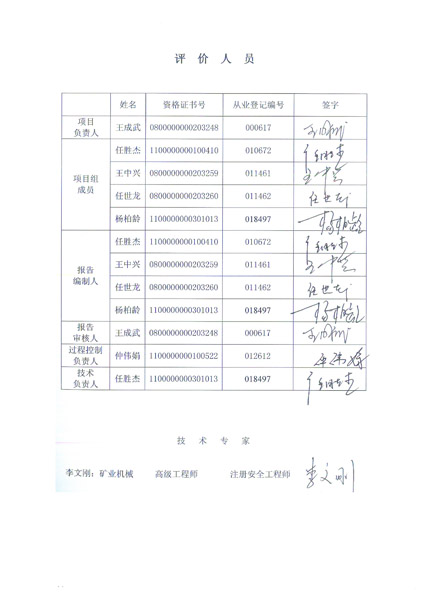 评 价 人 员
姓名 资格证书号 从业登记编号 签字
项目负责人 王成武 0800000000203248 000617 王成武
项目组成员 任胜杰 1100000000100410 010672 任胜杰
王中兴 0800000000203259 011461 王中兴
任世龙 0800000000203260 011462 任世龙
杨柏龄 1100000000301013 018497 杨柏龄
报告编制人 任胜杰 1100000000100410 010672 任胜杰
王中兴 0800000000203259 011461 王中兴
任世龙 0800000000203260 011462 任世龙
杨柏龄 1100000000301013 018497 杨柏龄
报告审核人 王成武 0800000000203248 000617 王成武
过程控制负责人 仲伟娟 1100000000100522 012612
技术负责人 任胜杰 1100000000301013 018497 任胜杰
技 术 专 家
李文刚：矿业机械 高级工程师 注册安全工程师 李文刚